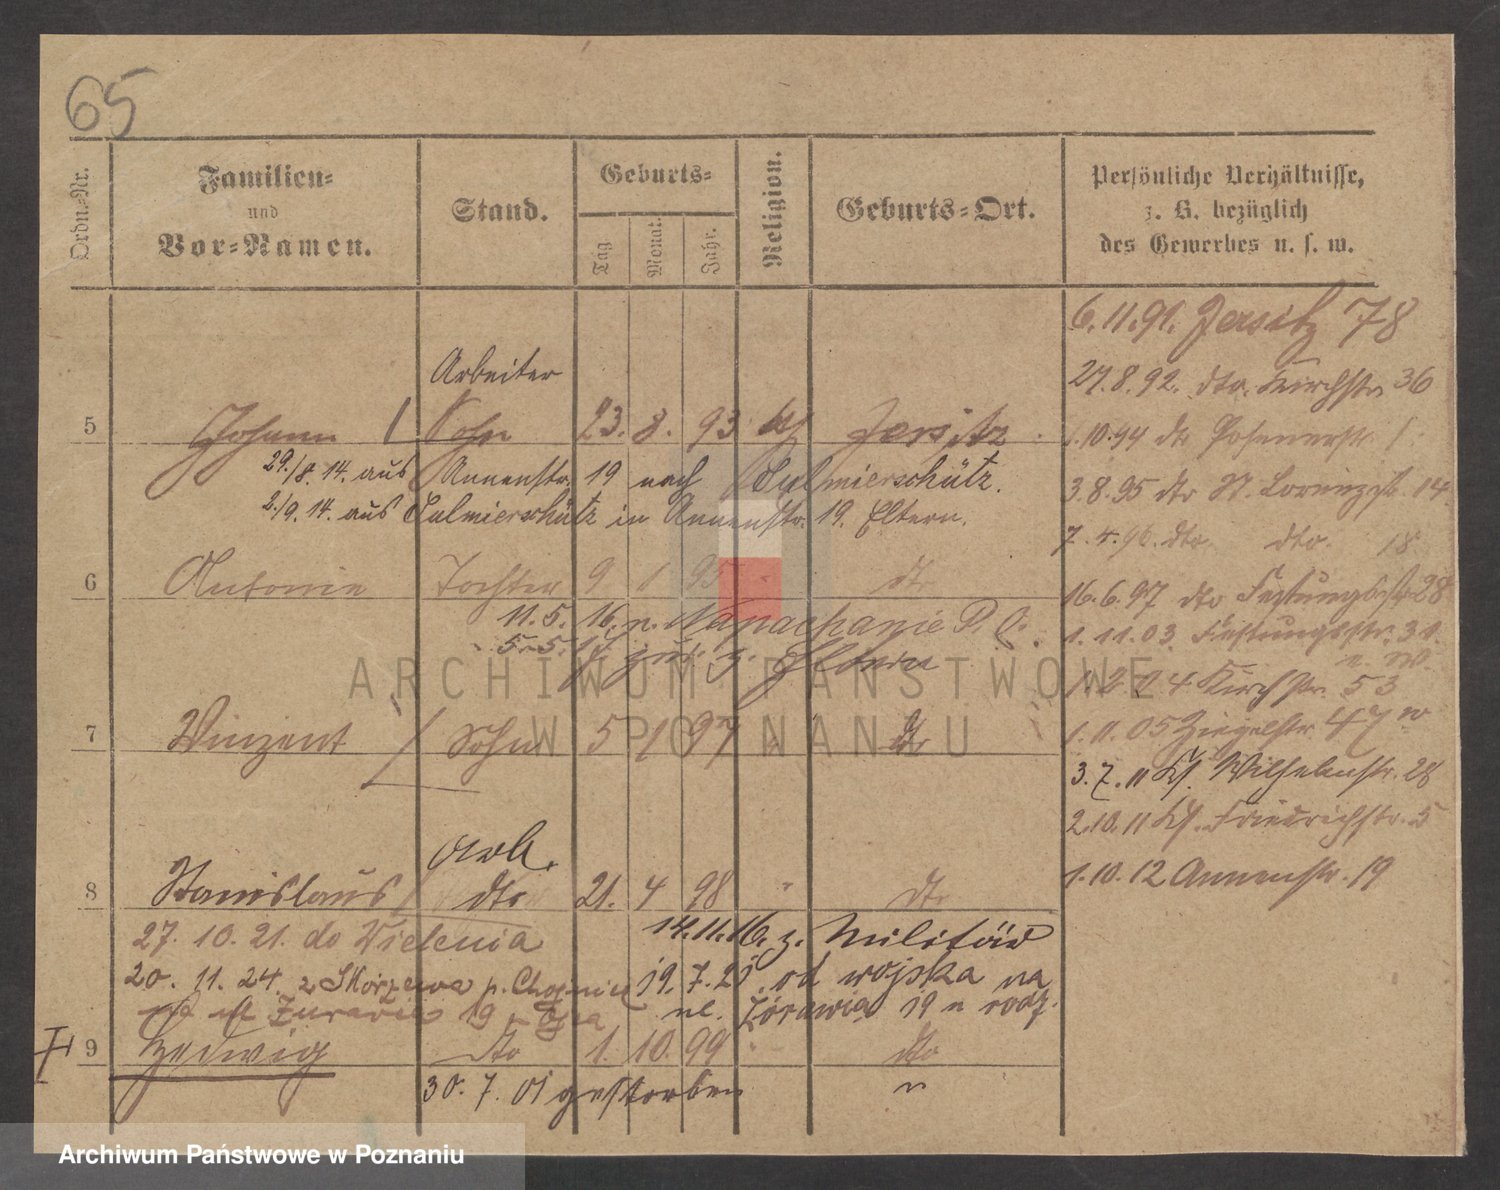 65
Ordn.-Nr.
Familien-
und
Vor-Namen.
Stand.
Geburts-
Tag.
Monat.
Jahr.
Religion.
Geburts-Ort.
Persönliche Verhältnisse,
z. B. bezüglich
des Gewerbes u. s. w.
6.11.91. Jersitz 78
27.8.92. dto. Kirchstr. 36
Arbeiter
5 Johann Sohn 23. 8. 93 Jersitz
10.94 dto Posenerstr. 1
29./8.14. aus Annenstr. 19 nach Sulmierschütz.
3.8.95 dto St. Lorenzstr. 14
2./9.14. aus Sulmierschütz in Annenstr. 19. Eltern.
7.4.96. dto. dto. 18
6 Antonie Tochter 9 1 95 dto
16.6.97 dto Festungsstr 28
11.5.16. n. Napachanie P. O.
1.11.03. Festungsstr. 31
5.5.17. zur. z. Eltern
Kirchstr. 53
7 Winzent Sohn 5 1 97 dto
1.11.05 Ziegelstr. 47
3.7.11 Wilhelmstr. 28
2.10.11 Friedrichstr. 5
Arb.
8 Stanislaus dto 21. 4 98 " dto
1.10.12 Annenstr. 19
27. 10. 21. do Wielenia
14.11.16. z. Militär
20. 11. 24. z Skórzewa p. Chojnice
19.7.21. od wojska na
ul. Żórawia 19 u rodz.
9 Hedwig dto 1. 10. 99 dto
30. 7. 01 gestorben
ARCHIWUM PAŃSTWOWE
W POZNANIU
Archiwum Państwowe w Poznaniu